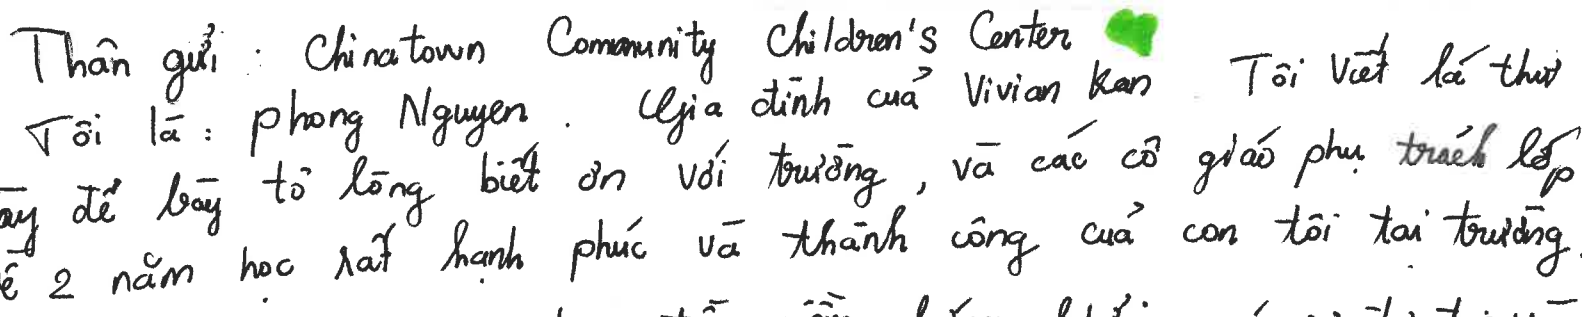 Thân gửi : Chinatown Community Children's Center
Tôi là : phong Nguyen . Gia đình cuả Vivian Kan . Tôi viết lá thư
ày để bày tỏ lòng biết ơn với trường , và các cô giaó phụ trách lớp
ề 2 năm học rất hạnh phúc và thành công cuả con tôi tại trường.